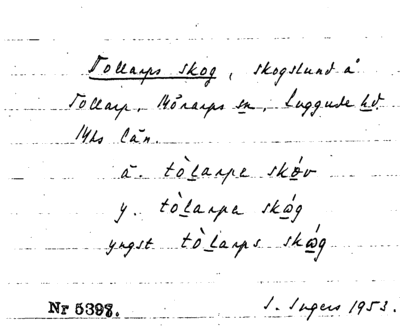 Tollarps skog, skogslund å
Tollarp, Mörarps sn, Luggude hd
Mhs län.
ä. tòlarpa skóv
y. tòlarpa skǿg
yngst tòlarps skǿg
Nr 5398. I. Ingers 1953.